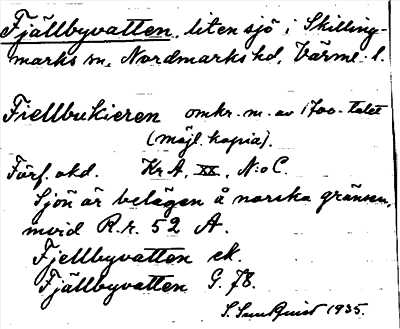 Fjällbyvatten, liten sjö i Skilling-
marks sn, Nordmarks hd, Värml. l.
Fiellbukieren omkr. m. av 1700-talet
(möjl. kopia).
Förf. okd. Kr A, XX, N:o C.
Sjön är belägen å norska gränsen,
mvid R.r. 52 A.
Fjellbyvatten ek.
Fjällbyvatten G. 78.
S. Sundquist 1935.